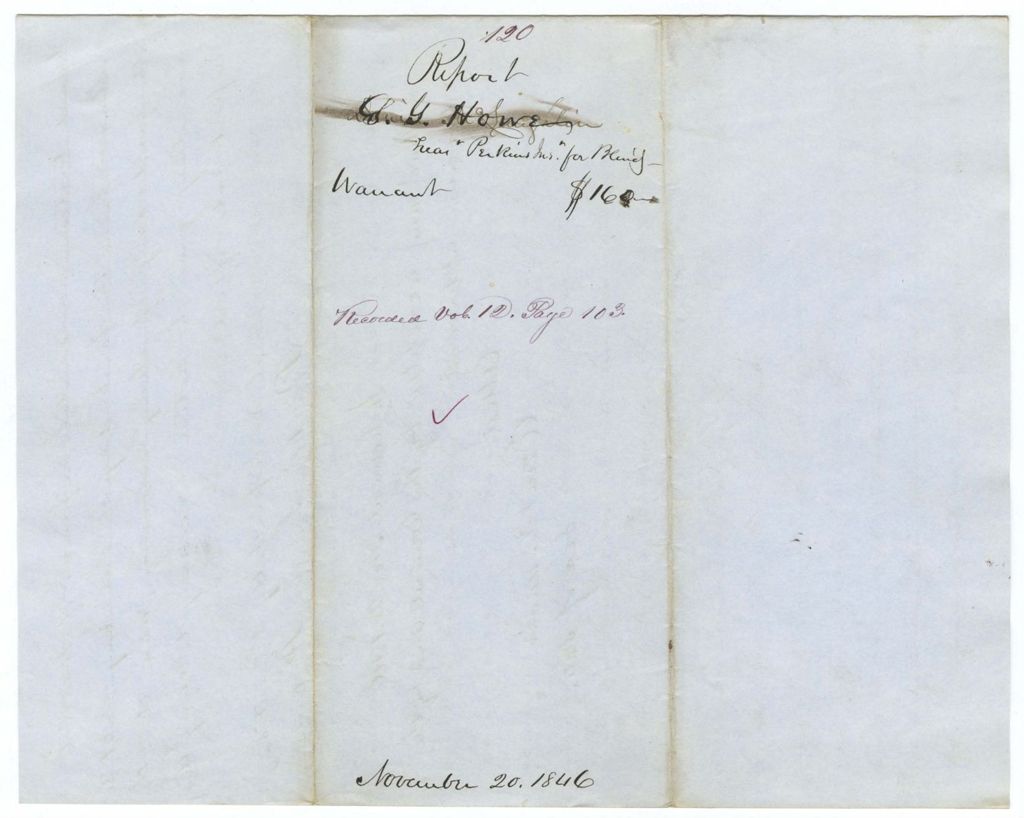 120
Report
S. G. Howe
Treas" Perkins Ins." for Blind
Warrant $160
Recorded Vol. 12. Page 103.
November 20. 1846